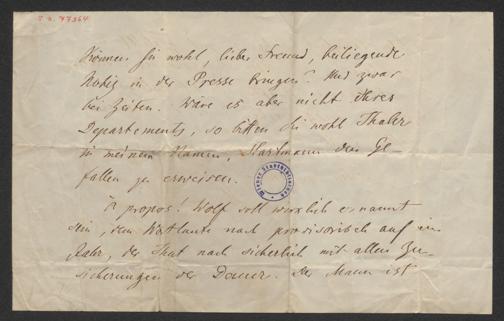 J. N. 77364
Können Sie wohl, lieber Freund, beiliegende
Notiz in der Presse bringen? Und zwar
bei Zeiten. Wäre es aber nicht Ihres
Departements, so bitten Sie wohl Thaler
in meinem Namen, Hartmann den Ge-
fallen zu erweisen.
À propos! Wolf soll wirklich ernannt
sein, dem Wortlaute nach provisorisch auf ein
Jahr, der That nach sicherlich mit allen Zu-
sicherungen der Dauer. Der Mann ist
Wiener Stadtbibliothek